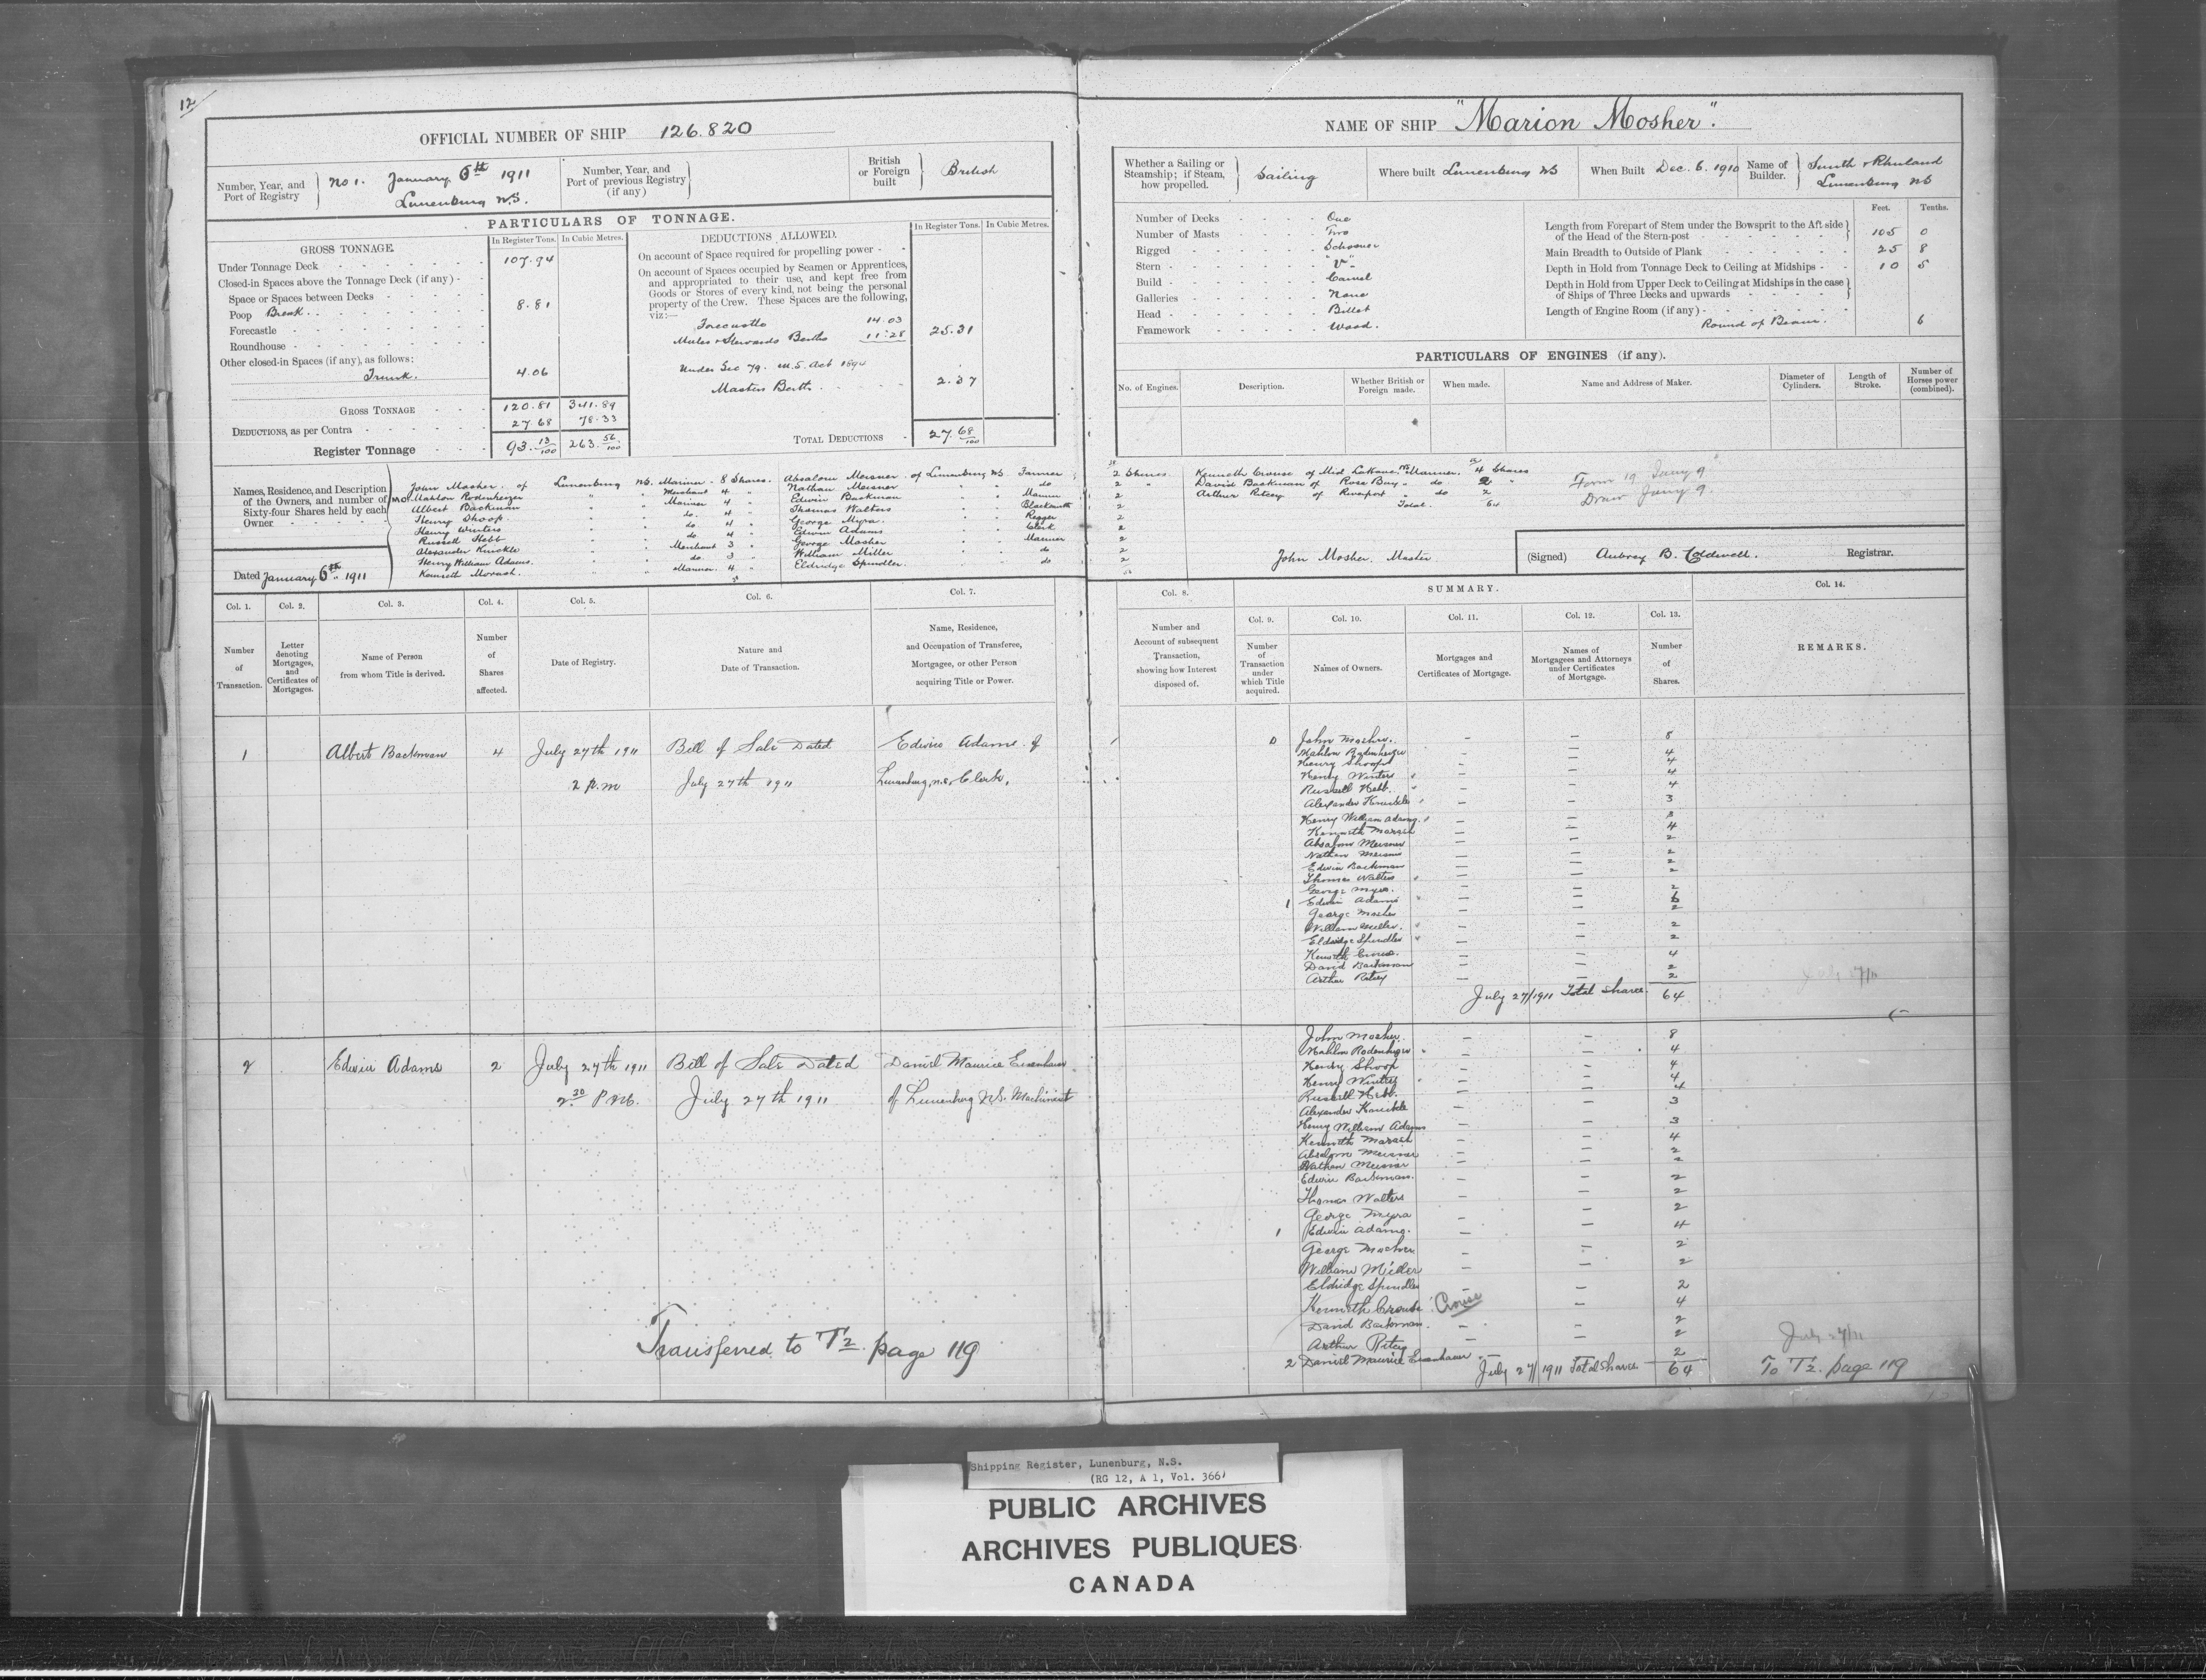 12
OFFICIAL NUMBER OF SHIP 126.820
Number, Year, and Port of Registry
No 1. January 6th 1911
Lunenburg N.S.
Number, Year, and Port of previous Registry (if any)
British or Foreign built
British
PARTICULARS OF TONNAGE.
GROSS TONNAGE.
In Register Tons. In Cubic Metres.
Under Tonnage Deck 107.94
Closed-in Spaces above the Tonnage Deck (if any)
Space or Spaces between Decks
Poop Break. 8.81
Forecastle
Roundhouse
Other closed-in Spaces (if any), as follows:
Trunk. 4.06
GROSS TONNAGE 120.81 341.89
DEDUCTIONS, as per Contra 27.68 78.33
Register Tonnage 93.13/100 263.56/100
DEDUCTIONS ALLOWED.
In Register Tons. In Cubic Metres.
On account of Space required for propelling power
On account of Spaces occupied by Seamen or Apprentices, and appropriated to their use, and kept free from Goods or Stores of every kind, not being the personal property of the Crew. These Spaces are the following, viz:—
Forecastle 14.03
Mates & Stewards Berths 11.28 25.31
Under Sec 79. M.S. Act 1894
Masters Berth 2.37
TOTAL DEDUCTIONS 27.68/100
Names, Residence, and Description of the Owners, and number of Sixty-four Shares held by each Owner
John Mosher. of Lunenburg NS. Mariner - 8 Shares.
Mahlon Rodenheizer " " Merchant 4 "
Albert Backman " " Mariner 4 "
Henry Shoop " " do. 4 "
Henry Winters " " do 4 "
Russell Hebb " " do 4 "
Alexander Knickle " " Merchant 3 "
Henry William Adams. " " do 3 "
Kenneth Morash. " " Mariner. 4 "
38
Absalom Meisner. of Lunenburg NS. Farmer
Nathan Meisner " " do
Edwin Backman " " Mariner
Thomas Walters " " Blacksmith
George Myra. " " Rigger
Edwin Adams " " Clerk
George Mosher " " Mariner
William Miller " " do
Eldridge Spindler. " " do
Dated January 6th 1911
NAME OF SHIP "Marion Mosher".
Whether a Sailing or Steamship; if Steam, how propelled.
Sailing
Where built Lunenburg NS
When Built Dec. 6. 1910
Name of Builder.
Smith & Rhuland
Lunenburg NS
Number of Decks One
Number of Masts Two
Rigged Schooner
Stern "V"
Build Carvel
Galleries None
Head Billet
Framework Wood.
Feet. Tenths.
Length from Forepart of Stem under the Bowsprit to the Aft side of the Head of the Stern-post 105 0
Main Breadth to Outside of Plank 25 8
Depth in Hold from Tonnage Deck to Ceiling at Midships 10 5
Depth in Hold from Upper Deck to Ceiling at Midships in the case of Ships of Three Decks and upwards
Length of Engine Room (if any)
Round of Beam. 6
PARTICULARS OF ENGINES (if any).
No. of Engines. Description. Whether British or Foreign made. When made. Name and Address of Maker. Diameter of Cylinders. Length of Stroke. Number of Horses power (combined).
38
2 Shares
2 "
2
2
2
2
2
2
2
56
Kenneth Crouse of Mid LaHave NS Mariner. 4 Shares
David Backman of Rose Bay " do 2 "
Arthur Ritcey of Riverport " do 2
Total. 64
Form 19 Jany 9
Draw Jany 9.
John Mosher. Master.
(Signed) Aubrey B. Coldwell. Registrar.
Col. 1. Col. 2. Col. 3. Col. 4. Col. 5. Col. 6. Col. 7.
Number of Transaction.
Letter denoting Mortgages, and Certificates of Mortgages.
Name of Person from whom Title is derived.
Number of Shares affected.
Date of Registry.
Nature and Date of Transaction.
Name, Residence, and Occupation of Transferee, Mortgagee, or other Person acquiring Title or Power.
Col. 8.
Number and Account of subsequent Transaction, showing how Interest disposed of.
SUMMARY.
Col. 9. Col. 10. Col. 11. Col. 12. Col. 13.
Number of Transaction under which Title acquired.
Names of Owners.
Mortgages and Certificates of Mortgage.
Names of Mortgagees and Attorneys under Certificates of Mortgage.
Number of Shares.
Col. 14.
REMARKS.
1 Albert Backman 4 July 27th 1911 Bill of Sale Dated Edwin Adams of
2 P.m July 27th 1911 Lunenburg, N.S., Clerk,
0 John Mosher. - - 8
Mahlon Rodenheizer - - 4
Henry Shoop - - 4
Henry Winters - - 4
Russell Hebb. - - 4
Alexander Knickle - - 3
Henry William Adams. - - 3
Kenneth Morash - - 4
Absalom Meisner - - 2
Nathan Meisner - - 2
Edwin Backman - - 2
Thomas Walters - - 2
George Myra. - - 2
1 Edwin Adams - - 6
George Mosher - - 2
William Miller. - - 2
Eldridge Spindler - - 2
Kenneth Crouse. - - 4
David Backman - - 2
Arthur Ritcey - - 2
July 27/1911 Total Shares. 64
2 Edwin Adams 2 July 27th 1911 Bill of Sale Dated Daniel Maurice Eisenhauer
2.30 P.M. July 27th 1911 of Lunenburg N.S. Machinist
John Mosher. - - 8
Mahlon Rodenheizer - - 4
Henry Shoop - - 4
Henry Winters - - 4
Russell Hebb. - - 4
Alexander Knickle - - 3
Henry William Adams - - 3
Kenneth Morash - - 4
Absalom Meisner - - 2
Nathan Meisner - - 2
Edwin Backman. - - 2
Thomas Walters - - 2
George Myra - - 2
1 Edwin Adams. - - 4
George Mosher - - 2
William Miller - - 2
Eldridge Spindler - - 2
Kenneth Crouse Crouse - 4
David Backman. - - 2
Arthur Ritcey - - 2
2 Daniel Maurice Eisenhauer - 2
July 27/1911 Total Shares 64
July 27/11
To T2. page 119
Transferred to T2. page 119
Shipping Register, Lunenburg, N.S.
(RG 12, A 1, Vol. 366)
PUBLIC ARCHIVES
ARCHIVES PUBLIQUES
CANADA